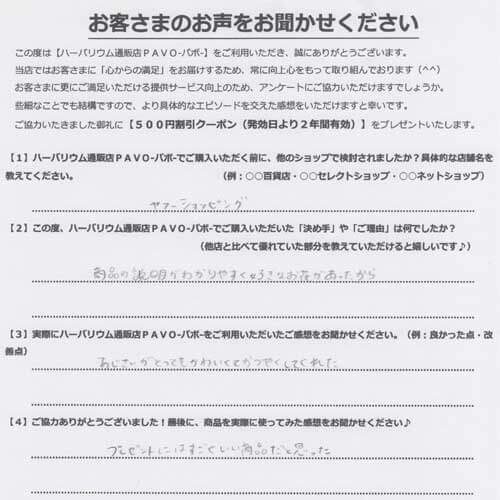 お客さまのお声をお聞かせください
この度は【ハーバリウム通販店ＰＡＶＯ-パボ-】をご利用いただき、誠にありがとうございます。
当店ではお客さまに「心からの満足」をお届けするため、常に向上心をもって取り組んでおります（^^）
お客さまに更にご満足いただける提供サービス向上のため、アンケートにご協力いただけますでしょうか。
些細なことでも結構ですので、より具体的なエピソードを交えた感想をいただけますと幸いです。
ご協力いただきました御礼に【５００円割引クーポン（発効日より２年間有効）】をプレゼントいたします。
【１】ハーバリウム通販店ＰＡＶＯ-パボ-でご購入いただく前に、他のショップで検討されましたか？具体的な店舗名を
教えてください。 （例：〇〇百貨店・〇〇セレクトショップ・〇〇ネットショップ）
ヤフーショッピング
【２】この度、ハーバリウム通販店ＰＡＶＯ-パボ-でご購入いただいた「決め手」や「ご理由」は何でしたか？
（他店と比べて優れていた部分を教えていただけると嬉しいです♪）
商品の説明がわかりやすく好きなお花があったから
【３】実際にハーバリウム通販店ＰＡＶＯ-パボ-をご利用いただいたご感想をお聞かせください。（例：良かった点・改
善点）
あじさいがとってもかわいくて
【４】ご協力ありがとうございました！最後に、商品を実際に使ってみた感想をお聞かせください♪
プレゼントにはすごくいい商品だと思った